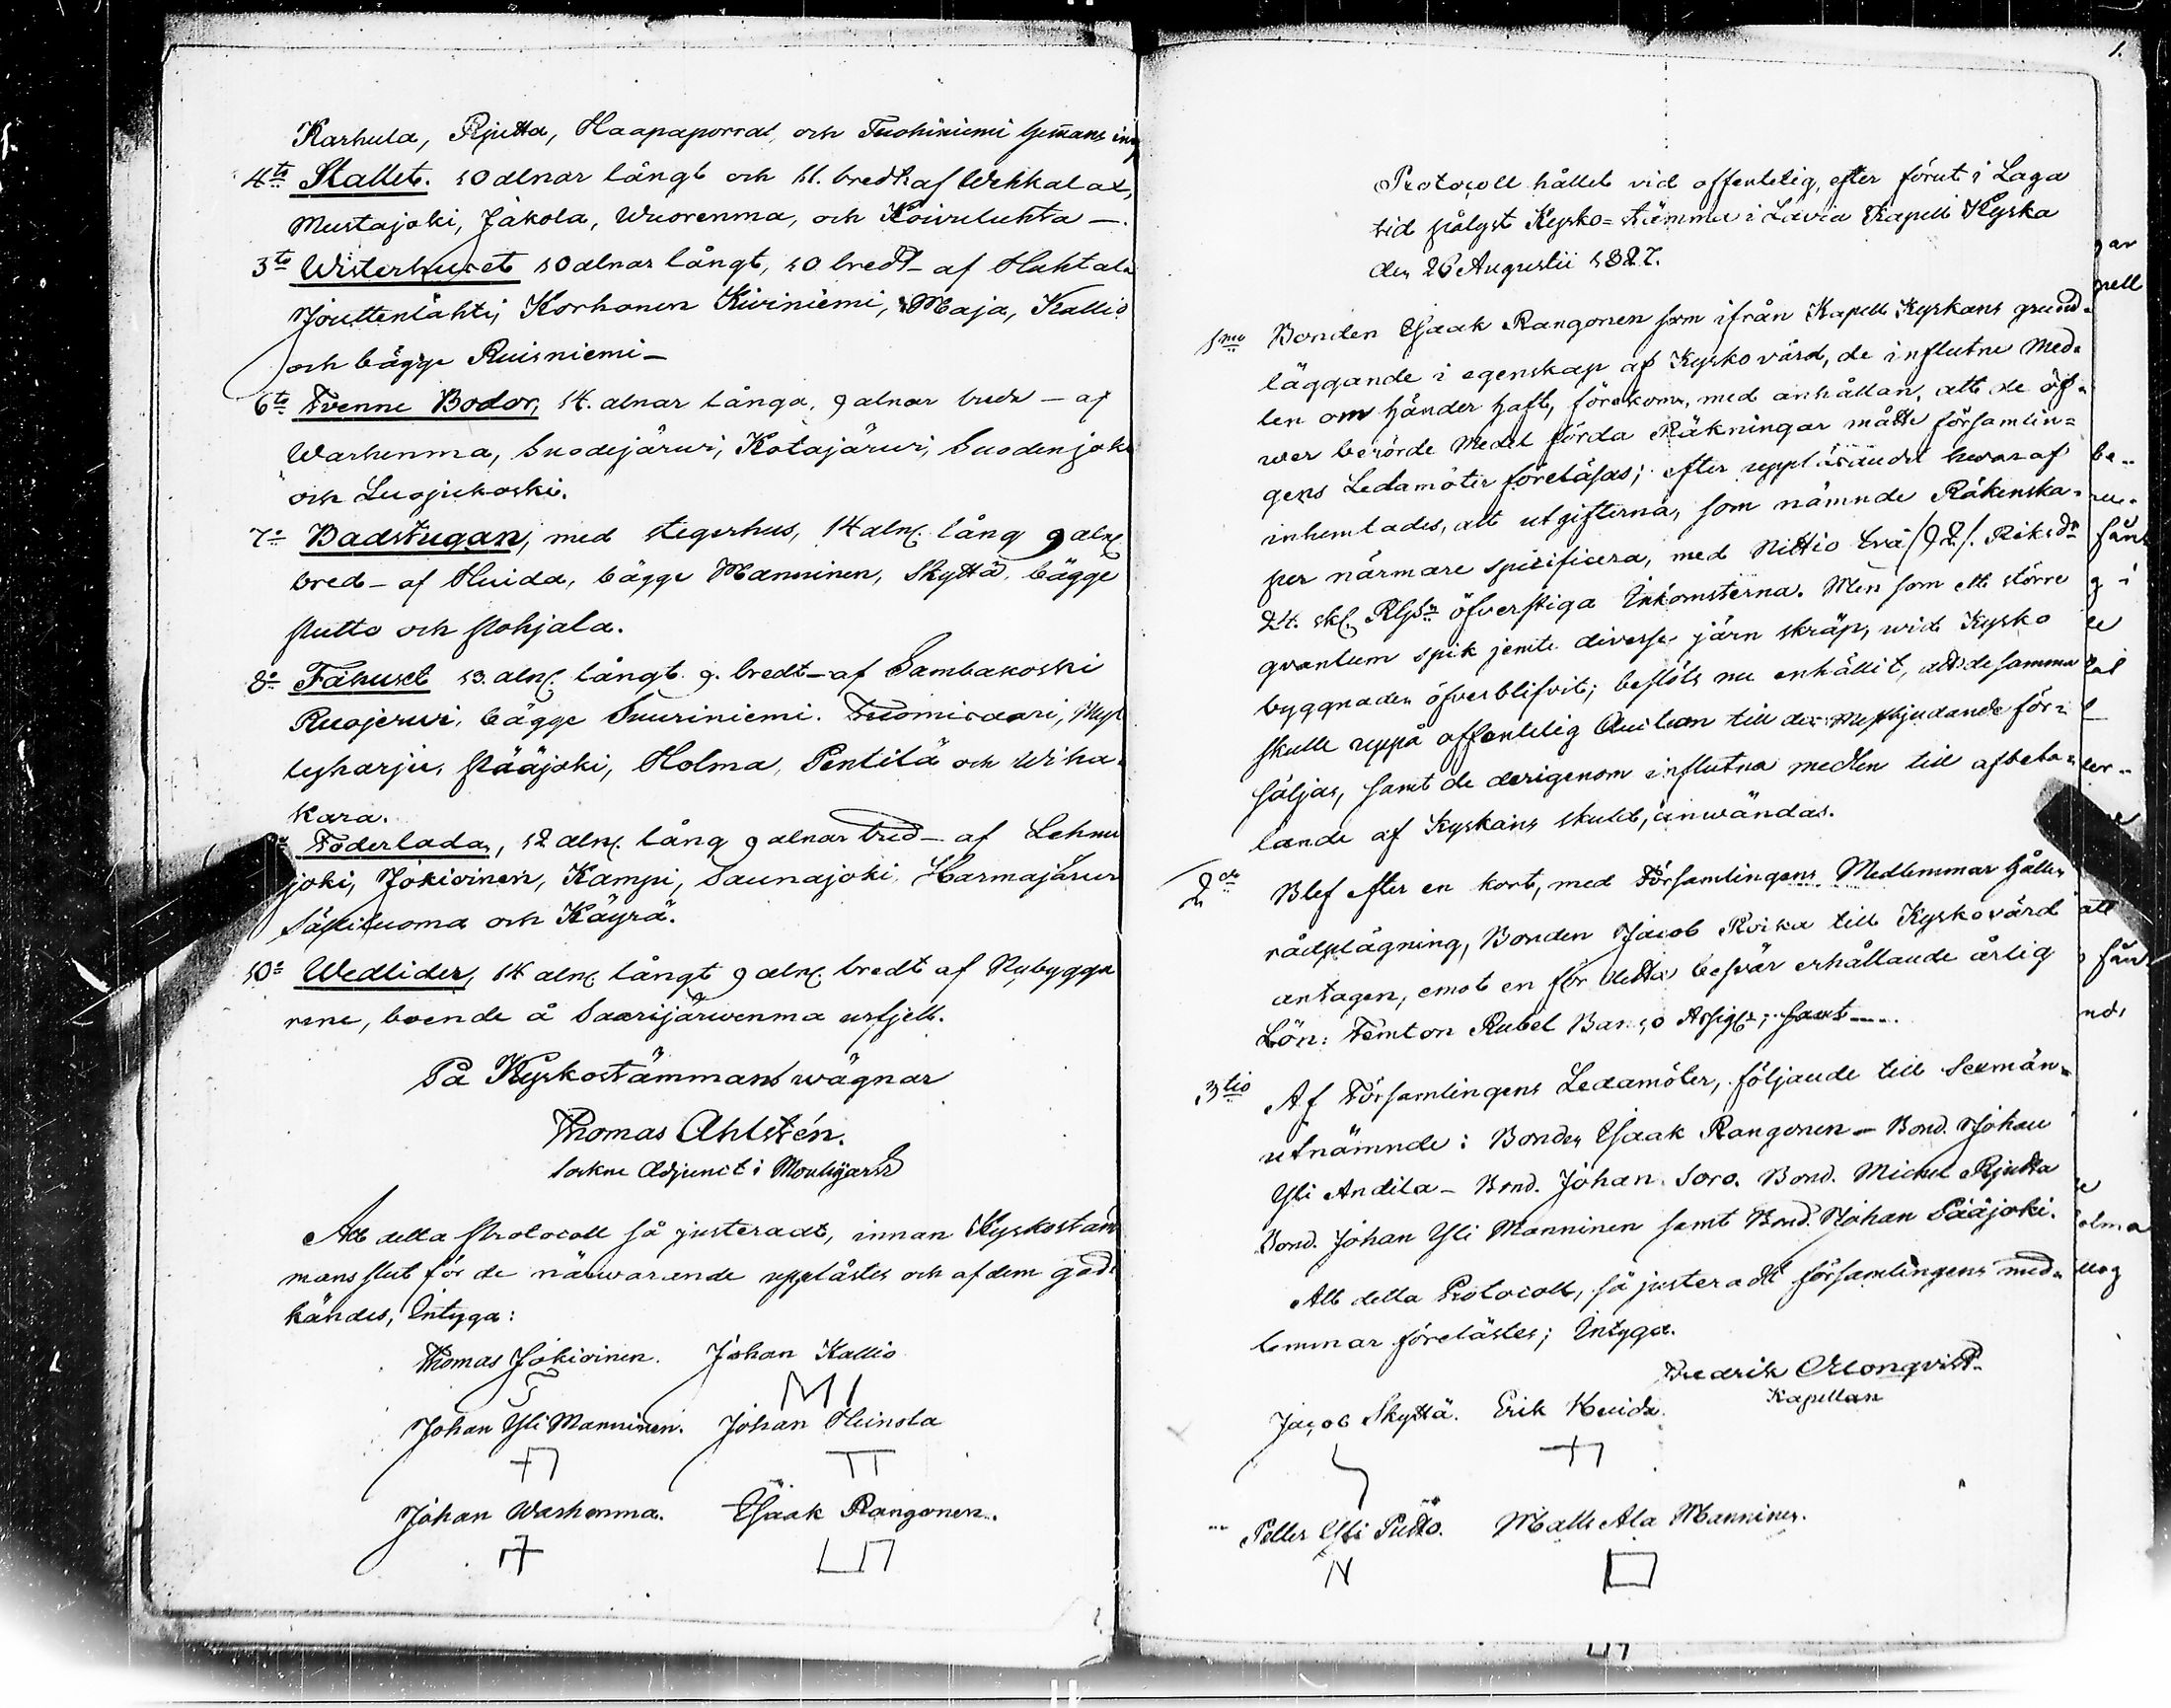 Karhula, Rjutta, Haapaporras, och Tuohiniemi hem̃ans
4to Stallet. 10 alnar långt och 11. bredt af Wehkalax,
Mustajoki, Jäkola, Wuorenma, och Koiruluhta —
5to Wisterhuset 10 alnar långt, 10 bredt af Huhtala
Jouttenlahti, Korhonen Kiviniemi, Maja, Kallio
och bägge Ruisniemi —
6to Tvenne Bodor, 14. alnar långa, 9 alnar breda — af
Warhenma, Suodejärwi, Kotajärwi, Suodenjoki
och Luojukoski.
7o Badstugan, med stegerhus, 14 aln. lång 9 aln.
bred — af Huida, bägge Manninen, Skyttä, bägge
Putto och Pohjala.
8o Fähuset 13. aln. långt. 9. bredt — af Sambakoski
Ruojerwi, bägge Suuriniemi. Tuomisaari, Myl
lyharju, Pääjoki, Holma, Pentilä och Wiha-
kara.
Foderlada, 12 aln. lång 9 alnar bred — af Lehmu
joki, Jokioinen, Kampi, Saunajoki, Harmajärwi
Säktiluoma och Käyrä.
10o Wedlider, 14 aln. långt 9 aln. bredt af Nybygga
rene, boende å Saarijärwenma utfjell.
På Kyrkostämmans wägnar
Thomas Ahlstén.
Sockne Adjunct i Mouhijärvi
Att detta Protocoll så justeradt, innan Kyrkostäm
mans slut för de närwarande upplästes och af dem god-
kändes, Intyga:
Thomas Jokioinen. Johan Kallio
Johan Yli Manninen. Johan Heinola
Johan Warhenma. Esaak Rangonen.
1.
Protocoll hållet vid offentelig, efter förut i Laga
tid pålyst Kyrko-stämma i Lavia Kapell Kyrka
den 26 Augustii 1827.
1mo Bonden Esaak Rangonen som ifrån Kapell Kyrkans grund-
läggande i egenskap af Kyrkovärd, de influtne Med-
len om händer haft, förekom, med anhållan, att de öf-
wer berörde Medel förda Räkningar måtte församlin-
gens Ledamöter föreläsas; efter uppläsandet hwaraf
inhemtades, att utgifterna, som nämnde Räkenska-
per närmare spicificera, med Nittio två /92/. Riksdr
24. sk. Rgs öfverstiga Inkomsterna. Men som ett större
qvantum spik jemte diverse järn skräp, wid Kyrko
byggnaden öfverblifvit; beslöts nu enhälligt, att desamma
skulle uppå offentelig Auction till den mestbjudande för-
säljas, samt de derigenom influtna medlen till afbeta-
lande af Kyrkans skuld, anwändas.
2do Blef efter en kort, med Församlingens Medlemmar hållen
rådplägning, Bonden Jacob Roika till Kyrkovärd
antagen, emot en för detta besvär erhållande årlig
Lön: Femton Rubel Banco Assigr; samt
3tio Af Församlingens Ledamöter, följande till Sexmän-
utnämnde: Bonden Esaak Rangonen — Bond. Johan
Yli Andila — Bond. Johan Soro. Bond. Michel Rjutta
Bond. Johan Yli Manninen samt Bond. Johan Pääjoki.
Att detta Protocoll, så justeradt församlingens med-
lemmar förelästes; Intyga.
Fredrik Blomqvist
Kapellan
Jacob Skyttä. Erik Huida.
Petter Yli Putto. Matts Ala Manninen.